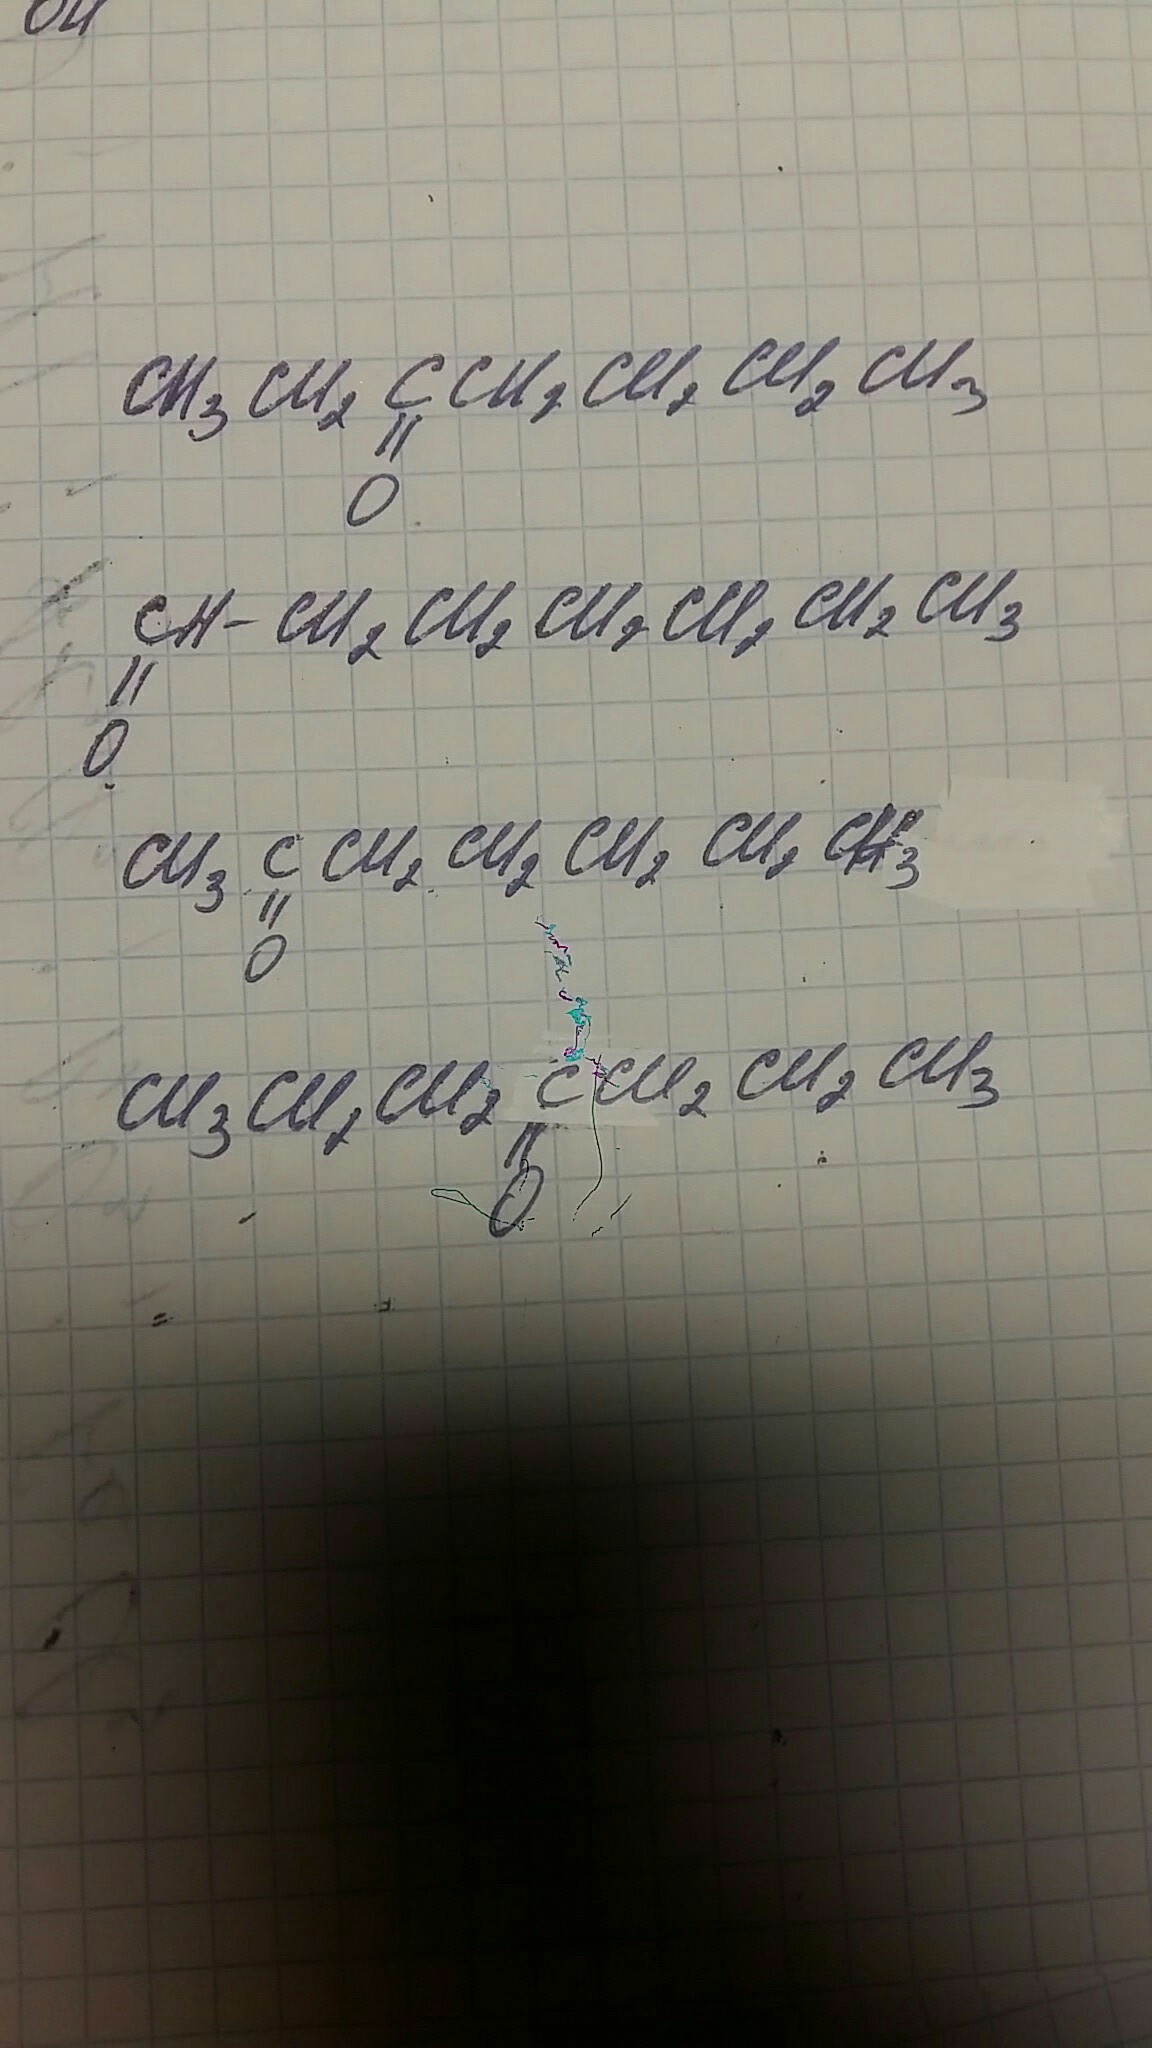 OH
CH₃ CH₂ C CH₂ CH₂ CH₂ CH₃
||
O
CH - CH₂ CH₂ CH₂ CH₂ CH₂ CH₃
||
O
CH₃ C CH₂ CH₂ CH₂ CH₂ CH₃
||
O
CH₃ CH₂ CH₂ C CH₂ CH₂ CH₃
||
O